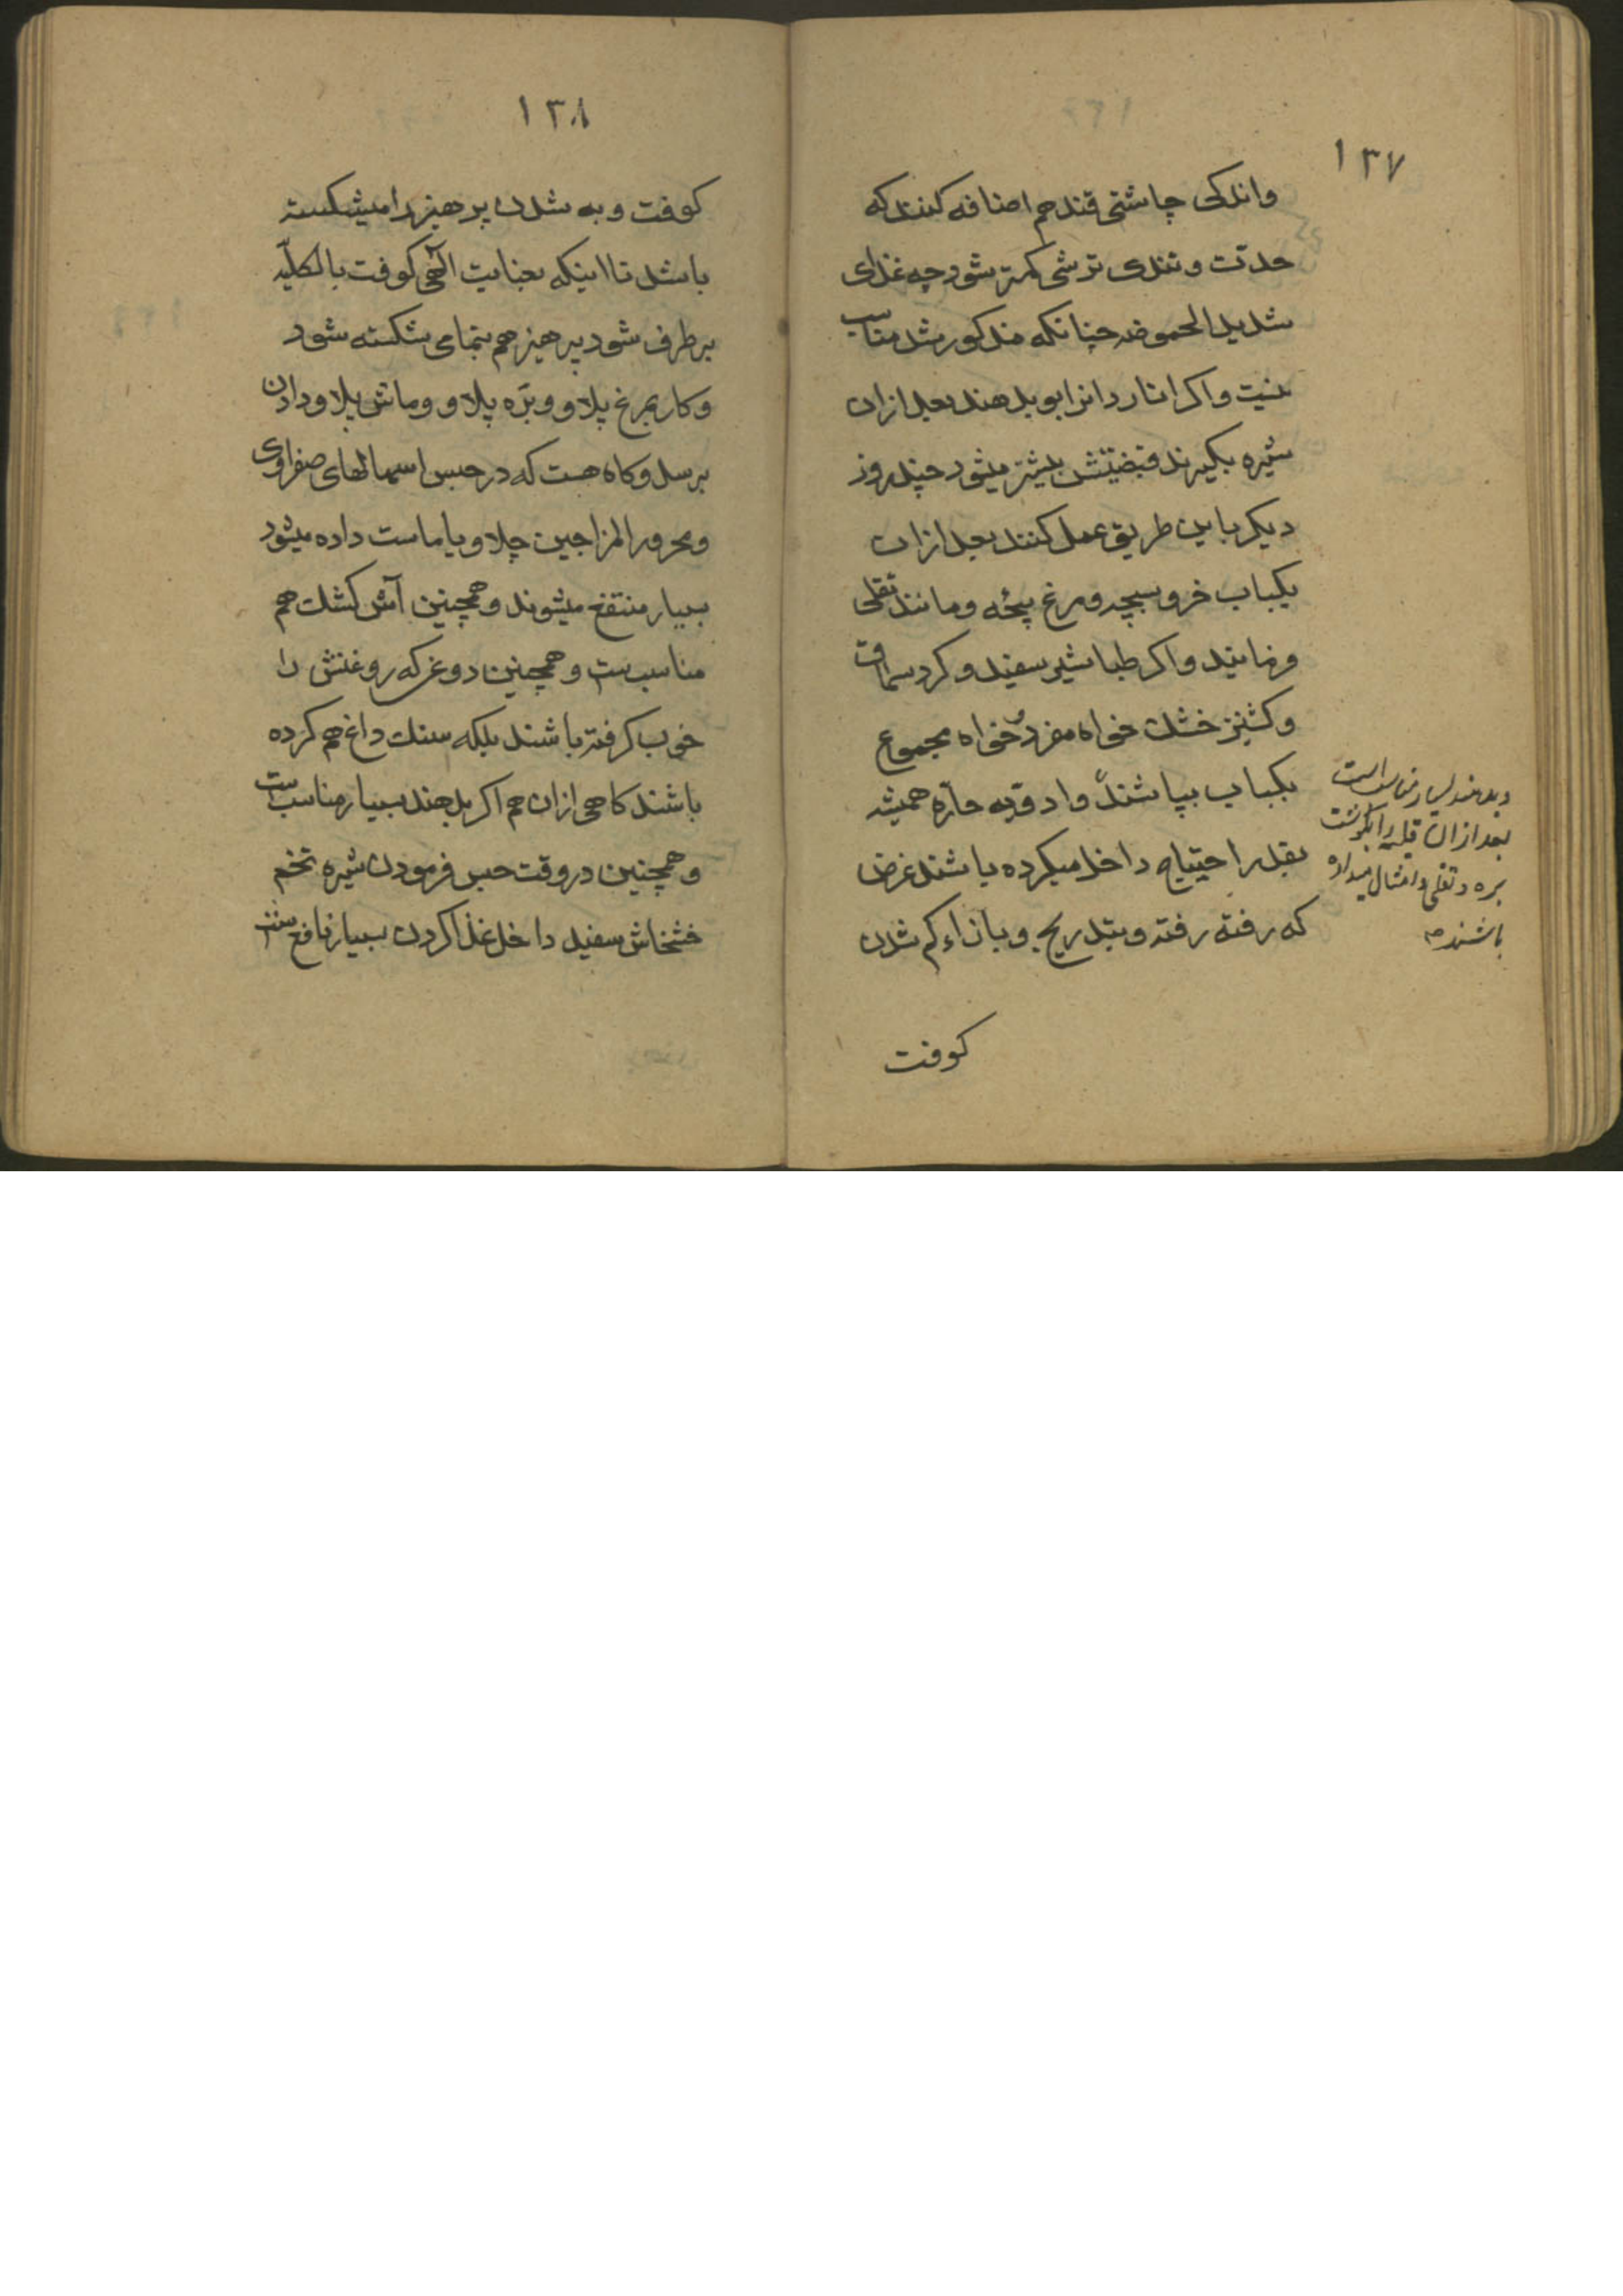 ۱۳۷
واندکی چاشنی قند هم اضافه کنند که
حدّت و تندی ترشی کمتر شود چه غذای
شدید الحموضه چنانکه مذکور شد مناسب
نیست واکر انار دانرا بو بدهند بعد ازان
شیره بکیرند قبضیتش بیشتر میشود چند روز
دیکر باین طریق عمل کنند بعد ازان
بکباب خروسبچه ومرغ بچه ومانند تقلی
فرمایند واکر طباشیر سفید وکرد سماق
وکشنیز خشک خواه مفرد خواه مجموع
بکباب بپاشند وادویه حارّه همیشه
بقدر احتیاج داخل میکرده باشند غرض
که رفته رفته وبتدریج وبازاء کم شدن
وبدهند بسیار مناسبست
بعد ازان قلیه را بکوشت
بره و تقلی و امثال میداده
باشند
کوفت
۱۳۸
کوفت وبه شدن پرهیز را میشکسته
باشد تا اینکه بعنایت الٓهی کوفت بالکلّیه
برطرف شود پرهیز هم بتمامی شکسته شود
وکار بمرغ پلاو وبرّه پلاو وماش پلاو دادن
برسد وکاه هست که در حبس اسهالهای صفراوی
ومحرور المزاجین چلاو با ماست داده میشود
بسیار منتفع میشوند وهمچنین آش کشک هم
مناسبست وهمچنین دوغ که روغنش را
خوب کرفته باشند بلکه سنک داغ هم کرده
باشند کاهی ازان هم اکر بدهند بسیار مناسبست
وهمچنین در وقت حبس فرمودن شیره تخم
خشخاش سفید داخل غذا کردن بسیار نافعست